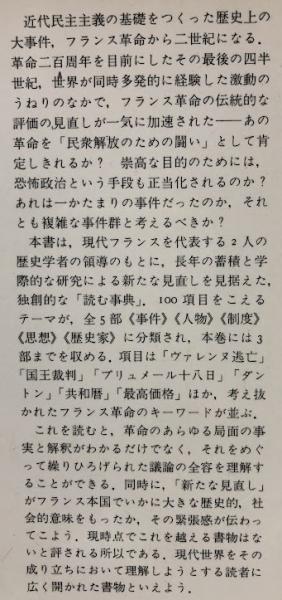 近代民主主義の基礎をつくった歴史上の
大事件，フランス革命から二世紀になる．
革命二百周年を目前にしたその最後の四半
世紀，世界が同時多発的に経験した激動の
うねりのなかで，フランス革命の伝統的な
評価の見直しが一気に加速された――あの
革命を「民衆解放のための闘い」として肯
定しきれるか？　崇高な目的のためには，
恐怖政治という手段も正当化されるのか？
あれは一かたまりの事件だったのか，それ
とも複雑な事件群と考えるべきか？
本書は，現代フランスを代表する2人の
歴史学者の領導のもとに，長年の蓄積と学
際的な研究による新たな見直しを見据えた，
独創的な「読む事典」．100項目をこえる
テーマが，全5部《事件》《人物》《制度》
《思想》《歴史家》に分類され，本巻には3
部までを収める．項目は「ヴァレンヌ逃亡」
「国王裁判」「ブリュメール十八日」「ダン
トン」「共和暦」「最高価格」ほか，考え抜
かれたフランス革命のキーワードが並ぶ．
これを読むと，革命のあらゆる局面の事
実と解釈がわかるだけでなく，それをめぐ
って繰りひろげられた議論の全容を理解す
ることができる．同時に，「新たな見直し」
がフランス本国でいかに大きな歴史的，社
会的意味をもったか，その緊張感が伝わっ
てこよう．現時点でこれを越える書物はな
いと評される所以である．現代世界をその
成り立ちにおいて理解しようとする読者に
広く開かれた書物といえよう．